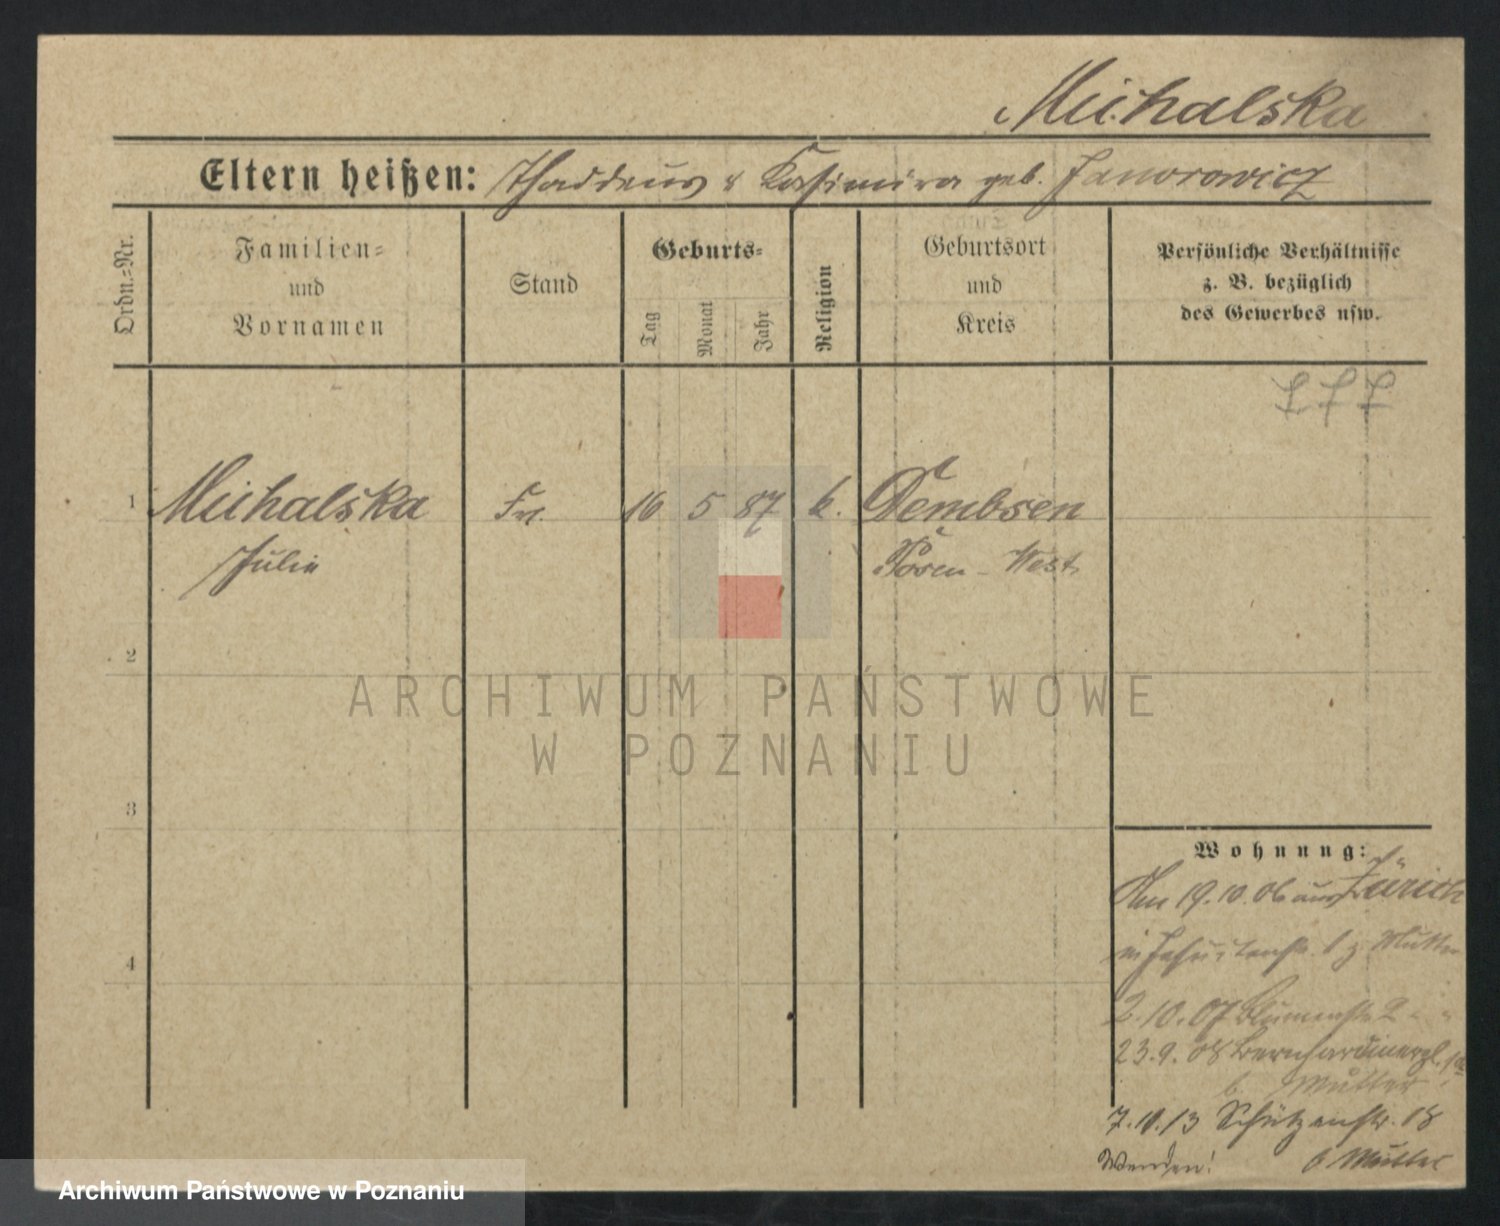 Michalska
Eltern heißen: Thaddeus & Kasimira geb. Jaworowicz
Ordn.=Nr.
Familien=
und
Vornamen
Stand
Geburts=
Tag
Monat
Jahr
Religion
Geburtsort
und
Kreis
Persönliche Verhältnisse
z. B. bezüglich
des Gewerbes usw.
1
Michalska
Julie
Frl.
16 5 87
k.
Dembsen
Posen - West
2
3
4
Wohnung:
Am 19.10.06 aus Zürich
in Jesuitenstr. z. Mutter
2.10.07 Blumenstr. 2 " "
23.9.08 Bernhardinerpl.
b. Mutter
7.10.13 Schützenstr. 18
Wenden! b Mutter
ARCHIWUM PAŃSTWOWE
W POZNANIU
Archiwum Państwowe w Poznaniu